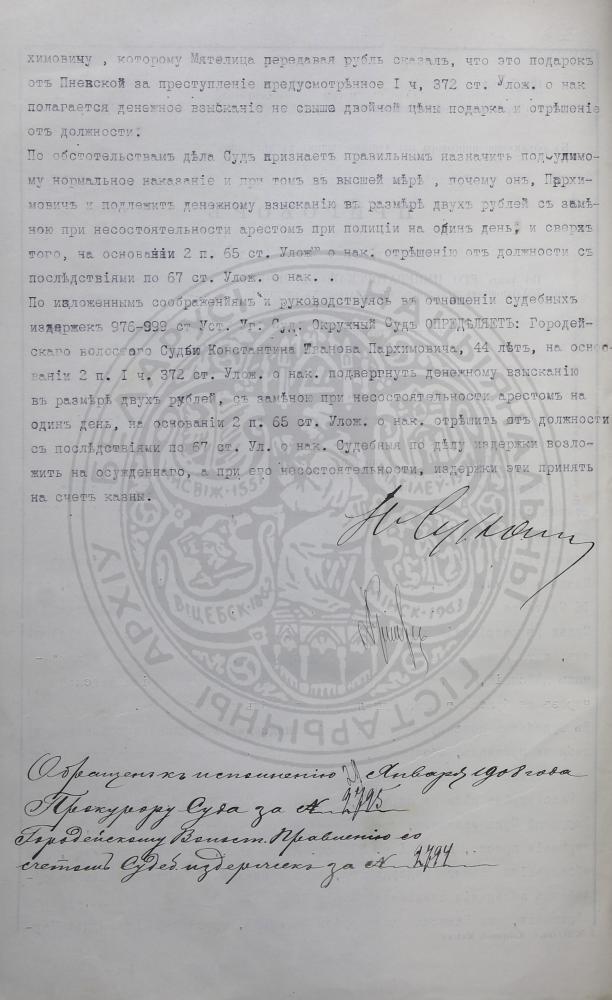 химовичу , которому Мятелица передавая рубль сказалъ, что это подарокъ
отъ Пневской за преступленіе предусмотрѣнное I ч, 372 ст. Улож. о нак
полагается денежное взысканіе не свыше двойной цѣны подарка и отрѣшеніе
отъ должности.
По обстотельствам дѣла Судъ признаетъ правильнымъ назначить подсудимо-
му нормальное наказаніе и при томъ въ высшей мѣрѣ , почему онъ, Пархи-
мовичъ и подлежитъ денежному взысканію въ размѣрѣ двухъ рублей съ замѣ-
ною при несостоятельности арестомъ при полиціи на одинъ день, и сверхъ
того, на основаніи 2 п. 65 ст. Улож. о нак. отрѣшенію отъ должности съ
послѣдствіями по 67 ст. Улож. о нак. .
По изложеннымъ соображеніямъ и руководствуясь въ отношеніи судебныхъ
издержекъ 976-999 ст Уст. Уг. Суд. Окружный Судъ ОПРЕДѢЛЯЕТЪ: Городей-
скаго волостного Судью Константина Иванова Пархимовича, 44 лѣтъ, на осно-
ваніи 2 п. I ч. 372 ст. Улож. о нак. подвергнуть денежному взысканію
въ размѣрѣ двухъ рублей, съ замѣною при несостоятельности арестомъ на
одинъ день, на основаніи 2 п. 65 ст. Улож. о нак. отрѣшить отъ должности
съ послѣдствіями по 67 ст. Ул. о нак. Судебныя по дѣлу издержки возло-
жить на осужденнаго, а при его несостоятельности, издержки эти принять
на счетъ казны.
Обращенъ къ исполненію 21 Января 1908 года
Прокурору Суда за № 2795
Городейскому Волост. Правленію со
счетомъ Судеб. издержекъ за № 2794
ВІЦЕБСК-1862
АРХІЎ
ГІСТАРЫЧНЫ